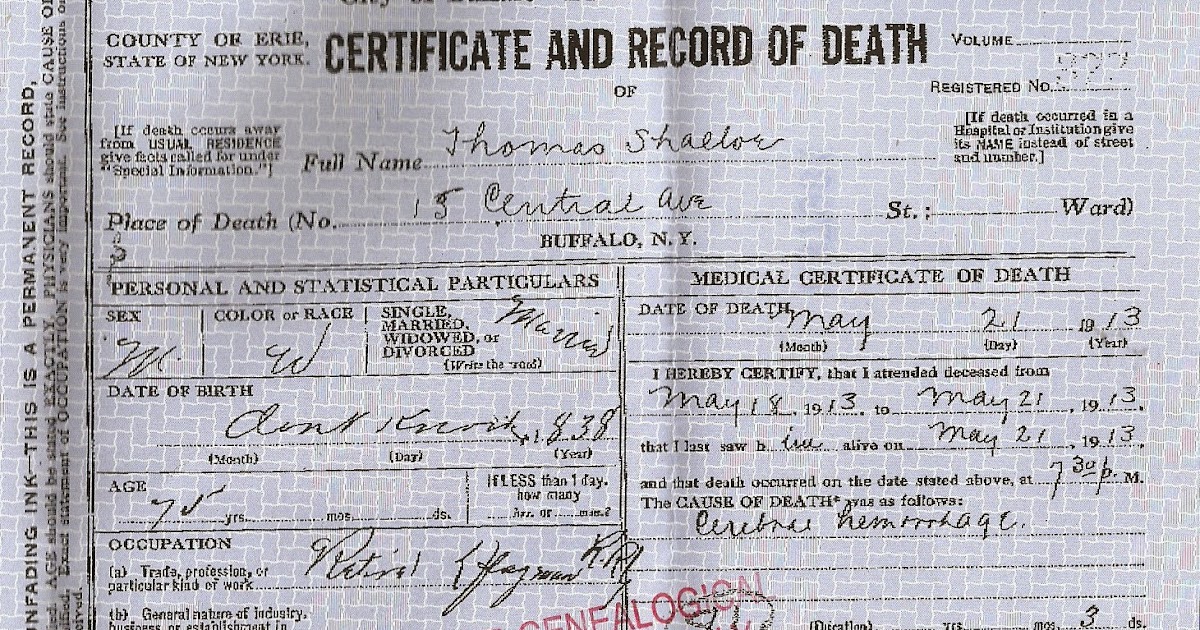 COUNTY OF ERIE,
STATE OF NEW YORK.
CERTIFICATE AND RECORD OF DEATH
OF
VOLUME
REGISTERED No.
[If death occurs away
from USUAL RESIDENCE
give facts called for under
"Special Information."]
Full Name Thomas Shaeloe
[If death occurred in a
Hospital or Institution give
its NAME instead of street
and number.]
Place of Death (No. 15 Central Ave St.; Ward)
BUFFALO, N. Y.
PERSONAL AND STATISTICAL PARTICULARS
SEX
M.
COLOR or RACE
W
SINGLE,
MARRIED,
WIDOWED, or
DIVORCED
(Write the word)
Married
DATE OF BIRTH
Dont Know, 1838
(Month) (Day) (Year)
AGE
75 yrs. mos. ds.
If LESS than 1 day,
how many
hrs. or min.?
OCCUPATION
(a) Trade, profession, or
particular kind of work
Retired Flagman R.R.
(b) General nature of industry,
business or establishment in
MEDICAL CERTIFICATE OF DEATH
DATE OF DEATH
May 21 1913
(Month) (Day) (Year)
I HEREBY CERTIFY, that I attended deceased from
May 18, 1913 to May 21, 1913,
that I last saw him alive on May 21, 1913,
and that death occurred on the date stated above, at 7 30 p. M.
The CAUSE OF DEATH* was as follows:
Cerebral hemorrhage.
(Duration) yrs. mos. 3 ds.
GENEALOGICAL
UNFADING INK—THIS IS A PERMANENT RECORD,
AGE should be stated EXACTLY. PHYSICIANS should state CAUSE OF
Exact statement of OCCUPATION is very important. See instructions on